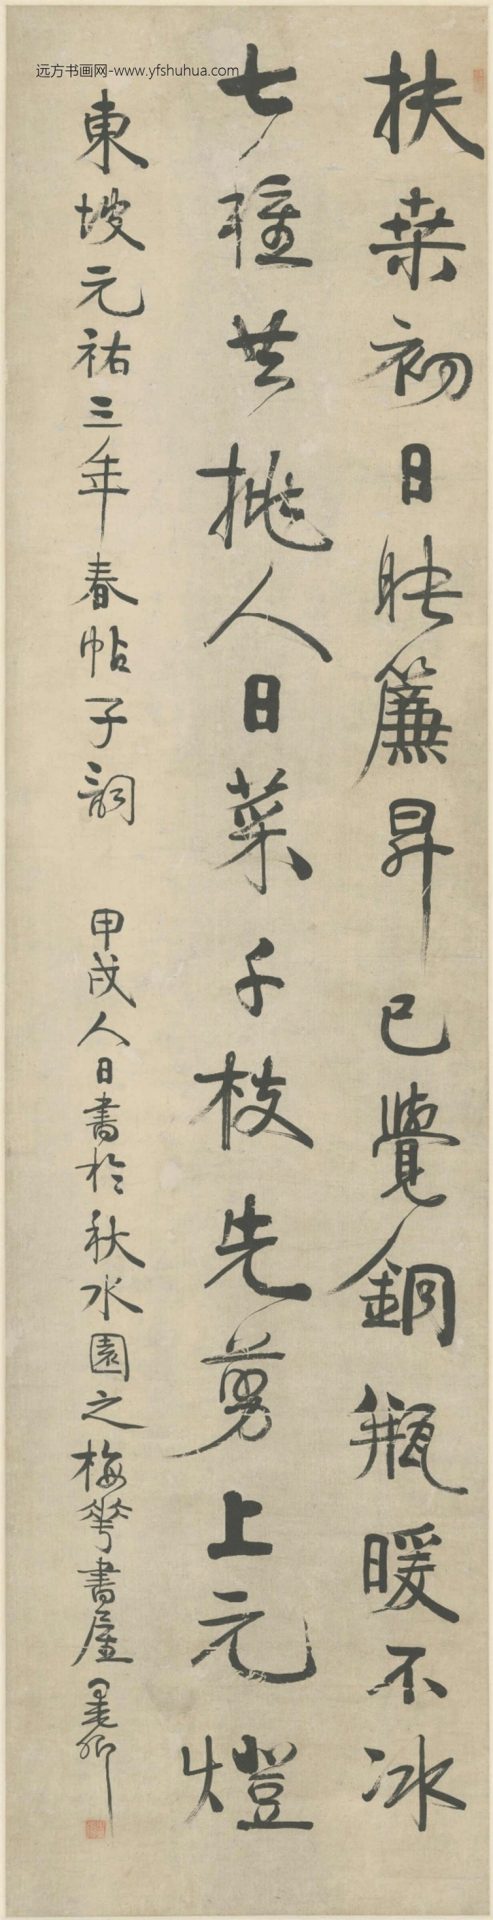 扶桒初日映簾昇已覺銅瓶暖不冰
七種共挑人日菜千枝先剪上元燈
東坡元祐三年春帖子詞 甲戌人日書於秋水園之梅華書屋 墨卿
远方书画网-www.yfshuhua.com